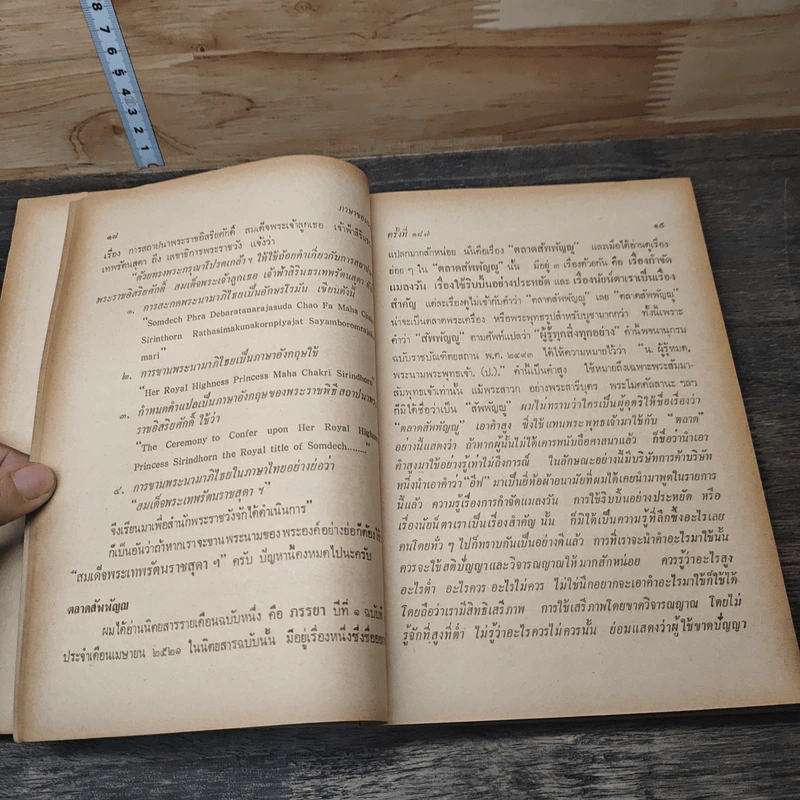 8
7
6
5
4
3
2
1
๑๘
ภาษาของ
เรื่อง การสถาปนาพระราชอิสริยศักดิ์ สมเด็จพระเจ้าลูกเธอ เจ้าฟ้าสิริน
เทพรัตนสุดา ถึง เลขาธิการพระราชวัง แจ้งว่า
"ด้วยทรงพระกรุณาโปรดเกล้า ฯ ให้ใช้ถ้อยคำเกี่ยวกับการสถาปนา
พระราชอิสริยศักดิ์ สมเด็จพระเจ้าลูกเธอ เจ้าฟ้าสิรินธรเทพรัตนสุดา
๑. การสะกดพระนามาภิไธยเป็นอักษรโรมัน เขียนดังนี้
"Somdech Phra Debaratanarajasuda Chao Fa Maha Chak
Sirinthorn Rathasimakunakornpiyajat Sayamboromraja
mari"
๒. การขานพระนามาภิไธยเป็นภาษาอังกฤษใช้
"Her Royal Highness Princess Maha Chakri Sirindhorn"
๓. กำหนดคำแปลเป็นภาษาอังกฤษของพระราชพิธี สถาปนาพระ
ราชอิสริยศักดิ์ ใช้ว่า
"The Ceremony to Confer upon Her Royal Highness
Princess Sirindhorn the Royal title of Somdech........"
๔. การขานพระนามาภิไธยในภาษาไทยอย่างย่อว่า
"สมเด็จพระเทพรัตนราชสุดา ฯ"
จึงเรียนมาเพื่อสำนักพระราชวังจักได้ดำเนินการ"
ก็เป็นอันว่าถ้าหากเราจะขานพระนามของพระองค์อย่างย่อก็ต้องใช้
"สมเด็จพระเทพรัตนราชสุดา ฯ" ครับ ปัญหานี้คงหมดไปนะครับ
ตลาดสัพพัญญู
ผมได้อ่านนิตยสารรายเดือนฉบับหนึ่ง คือ ภรรยา ปีที่ ๑ ฉบับที่
ประจำเดือนเมษายน ๒๕๒๑ ในนิตยสารฉบับนั้น มีอยู่เรื่องหนึ่งซึ่งชื่อออก
ครั้งที่ ๑๘๗
๑๙
แปลกมากสักหน่อย นั่นคือเรื่อง "ตลาดสัพพัญญู" และเมื่อได้อ่านดูเรื่อง
ย่อย ๆ ใน "ตลาดสัพพัญญู" นั้น มีอยู่ ๓ เรื่องด้วยกัน คือ เรื่องกำจัด
แมลงวัน เรื่องใช้ริบบิ้นอย่างประหยัด และ เรื่องนัยน์ตาเราเป็นเรื่อง
สำคัญ แต่ละเรื่องดูไม่เข้ากับคำว่า "ตลาดสัพพัญญู" เลย "ตลาดสัพพัญญู"
น่าจะเป็นตลาดพระเครื่อง หรือพระพุทธรูปสำหรับบูชามากกว่า ทั้งนี้เพราะ
คำว่า "สัพพัญญู" ตามศัพท์แปลว่า "ผู้รู้ทุกสิ่งทุกอย่าง" คำนี้พจนานุกรม
ฉบับราชบัณฑิตยสถาน พ.ศ. ๒๔๙๓ ได้ให้ความหมายไว้ว่า "น. ผู้รู้หมด,
พระนามพระพุทธเจ้า. (ป.)." คำนี้เป็นคำสูง ใช้หมายถึงเฉพาะพระสัมมา-
สัมพุทธเจ้าเท่านั้น แม้พระสาวก อย่างพระสารีบุตร พระโมคคัลลานะ ฯลฯ
ก็มิได้ชื่อว่าเป็น "สัพพัญญู" ผมไม่ทราบว่าใครเป็นผู้อุตริให้ชื่อเรื่องว่า
"ตลาดสัพพัญญู" เอาคำสูง ซึ่งใช้แทนพระพุทธเจ้ามาใช้กับ "ตลาด"
อย่างนี้แสดงว่า ถ้าหากผู้นั้นไม่ได้เคารพนับถือศาสนาแล้ว ก็ชื่อว่านำเอา
คำสูงมาใช้อย่างรู้เท่าไม่ถึงการณ์ ในลักษณะอย่างนี้มีบริษัทการค้าบริษัท
หนึ่งนำเอาคำว่า "อีฟ" มาเป็นยี่ห้อผ้าอนามัยที่ผมได้เคยนำมาพูดในรายการ
นี้แล้ว ความรู้เรื่องการกำจัดแมลงวัน การใช้ริบบิ้นอย่างประหยัด หรือ
เรื่องนัยน์ตาเราเป็นเรื่องสำคัญ นั้น ก็มิได้เป็นความรู้ที่ลึกซึ้งอะไรเลย
คนโดยทั่ว ๆ ไปก็ทราบกันเป็นอย่างดีแล้ว การที่เราจะนำคำอะไรมาใช้นั้น
ควรจะใช้สติปัญญาและวิจารณญาณให้มากสักหน่อย ควรรู้ว่าอะไรสูง
อะไรต่ำ อะไรควร อะไรไม่ควร ไม่ใช่นึกอยากจะเอาคำอะไรมาใช้ก็ใช้ได้
โดยถือว่าเรามีสิทธิเสรีภาพ การใช้เสรีภาพโดยขาดวิจารณญาณ โดยไม่
รู้จักที่สูงที่ต่ำ ไม่รู้ว่าอะไรควรไม่ควรนั้น ย่อมแสดงว่าผู้ใช้ขาดปัญญา